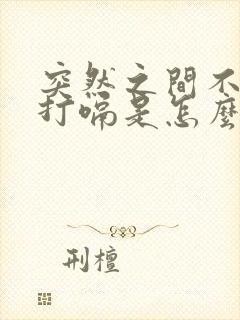 突然之間不
打嗝是怎麼
刑檀